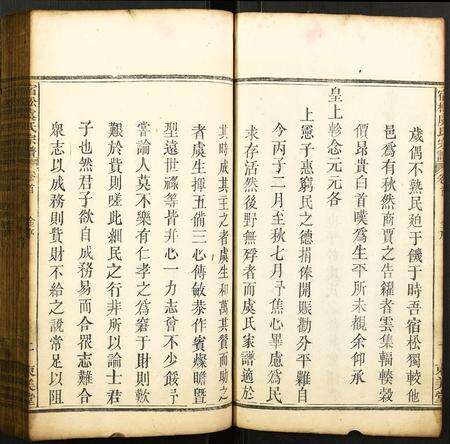 歲偶不熟民迫于饑于時吾宿松獨較他
邑爲有秋然商賈之告糴者雲集輻輳穀
價昂貴白首嘆爲生平所未覩余仰承
皇上軫念元元各
上憲子惠窮民之德捐俸開賑勸分平糶自
今丙子二月至秋七月焦心畢慮爲民
求存活然後野無殍者而虞氏家譜適於
其時成其主之者虞生和萬其贊而助之
者虞生揮五備三心傳敏恭作賓燦瞻曁
聖遠世祿等皆并心一力志曾不少餒
嘗論人莫不樂有仁孝之爲窘于財則歉
艱於費則嗟此細民之行非所以論士君
子也然君子欲自成務易而合眾志難合
眾志以成務則費財不給之說常足以阻
宿松虞氏宗譜
卷首
東美堂
宿松虞氏宗譜
卷首
二
東美堂